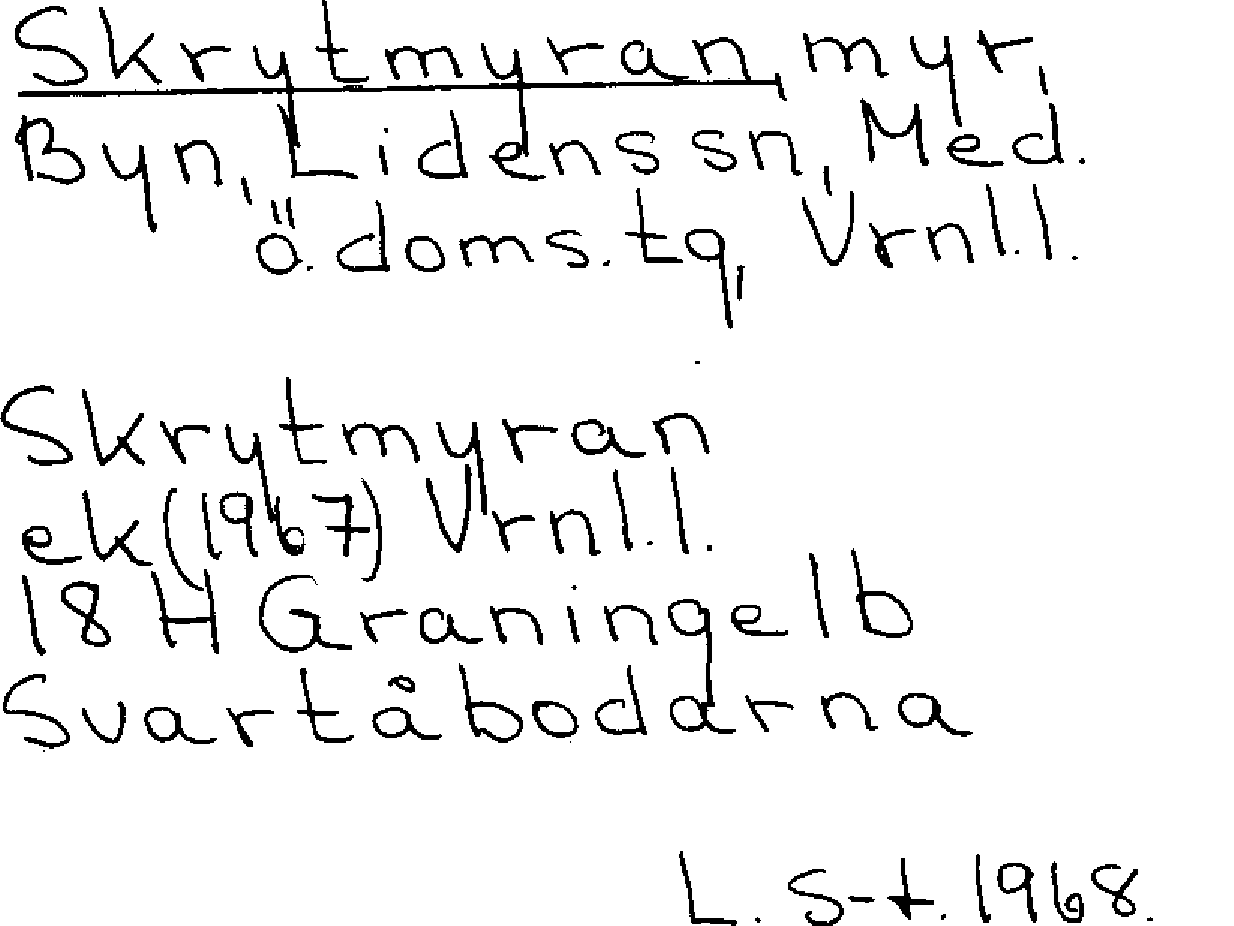 Skrytmyran, myr,
Byn, Lidens sn, Med.
ö. doms. tg, Vrnl.l.
Skrytmyran
ek (1967) Vrnl.l.
18 H Graninge 1b
Svartåbodarna
L. S-t. 1968.